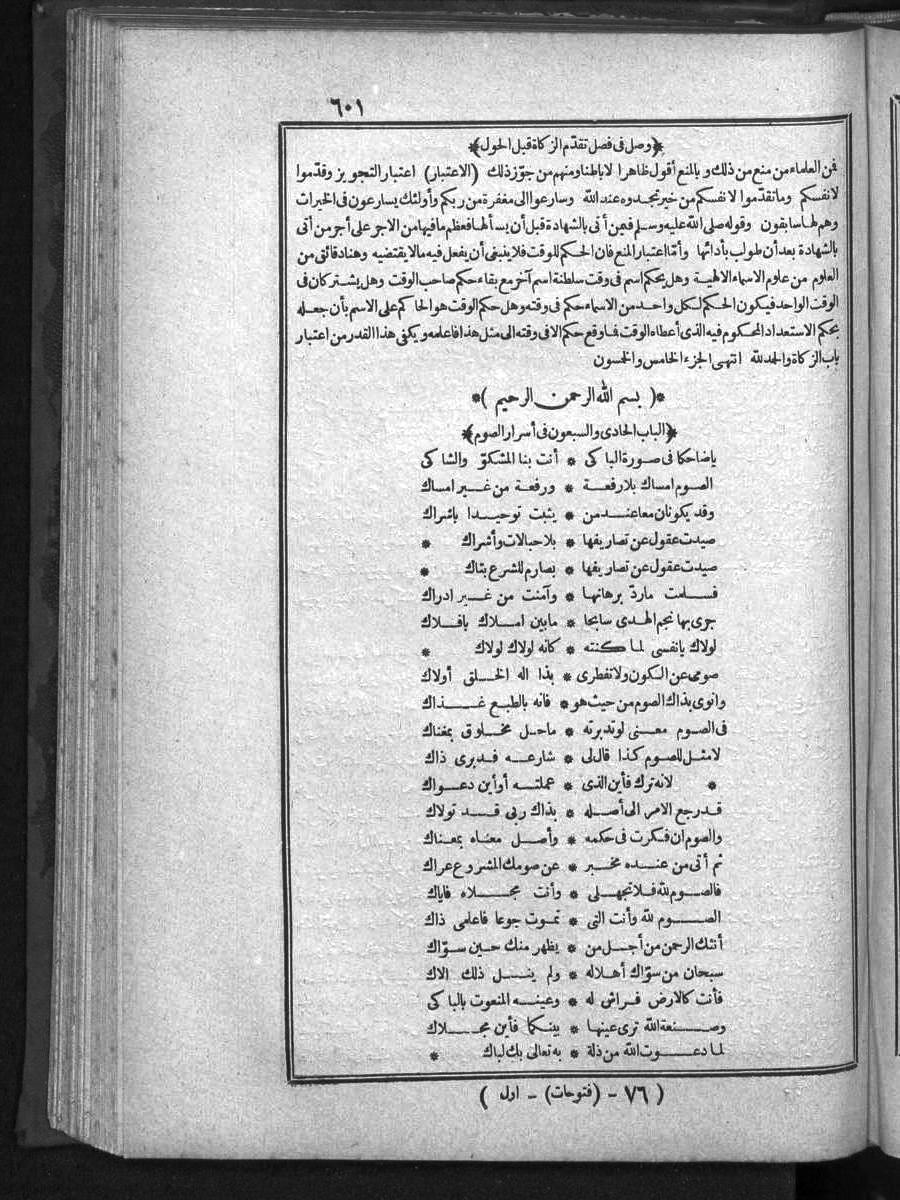 ٦٠١
﴿وصل في فصل تقدّم الزكاة قبل الحول﴾
فمن العلماء من منع من ذلك وبالمنع أقول ظاهرا لا باطنا ومنهم من جوّز ذلك (الاعتبار) اعتبار التجويز وقدّموا
لانفسكم وما تقدّموا لانفسكم من خير تجدوه عند الله وسارعوا الى مغفرة من ربكم وأولئك يسارعون في الخيرات
وهم لها سابقون وقوله صلى الله عليه وسلم فيمن أتى بالشهادة قبل أن يسألها فعظم ما فيها من الاجر على أجر من أتى
بالشهادة بعد أن طولب بأدائها وأمّا اعتبار المنع فان الحكم للوقت فلا ينبغي أن يفعل فيه ما لا يقتضيه وهنا دقائق من
العلوم من علوم الاسماء الالهية وهل يحكم اسم في وقت سلطنة اسم آخر مع بقاء حكم صاحب الوقت وهل يشتركان في
الوقت الواحد فيكون الحكم لكل واحد من الاسماء حكم في وقته وهل حكم الوقت هو الحاكم على الاسم بأن جعله
بحكم الاستعداد المحكوم فيه الذي أعطاه الوقت فما وقع حكم الا في وقته الى مثل هذا فاعلمه ويكفي هذا القدر من اعتبار
باب الزكاة والحمد لله انتهى الجزء الخامس والخمسون
*( بسم الله الرحمن الرحيم )*
﴿الباب الحادي والسبعون في أسرار الصوم﴾
ياضاحكا في صورة الباكي * أنت بنا المشكوّ والشاكي
الصوم امساك بلا رفعة * ورفعة من غير امساك
وقد يكونان معا عند من * يثبت توحيدا باشراك
صيدت عقول عن تصاريفها * بلا حبالات وأشراك *
صيدت عقول عن تصاريفها * بصارم للشرع بتاك *
فسلمت ماردّ برهانها * وآمنت من غير ادراك
جرى بها نجم الهدى سابحا * مابين املاك بافلاك
لولاك يانفسي لما كنته * كانه لولاك لولاك *
صومي عن الكون ولا تفطري * بذا اله الخلق أولاك
وانوي بذاك الصوم من حيث هو * فانه بالطبع غذاك
في الصوم معنى لو تدبرته * ماحل مخلوق بمغناك
لامثل للصوم كذا قال لي * شارعه فدبري ذاك
* لانه ترك فأين الذي * عملته أو أين دعواك
قد رجع الامر الى أصله * بذاك ربي قد تولاك
والصوم ان فكرت في حكمه * وأصل معناه بمعناك
ثم أتى من عنده مخبر * عن صومك المشروع عراك
فالصوم لله فلا تجهلي * وأنت مجلاه فاياك
الصوم لله وأنت التي * تموت جوعا فاعلمي ذاك
أنثك الرحمن من أجل من * يظهر منك حين سوّاك
سبحان من سوّاك أهلا له * ولم ينل ذلك الاك
فأنت كالارض فراش له * وعينه المنعوت بالباكي
وصنعة الله ترى عينها * بينكما فأين مجلاك
لما دعوت الله من ذلة * به تعالى بك لباك *
( ٧٦ - (فتوحات) - اول )